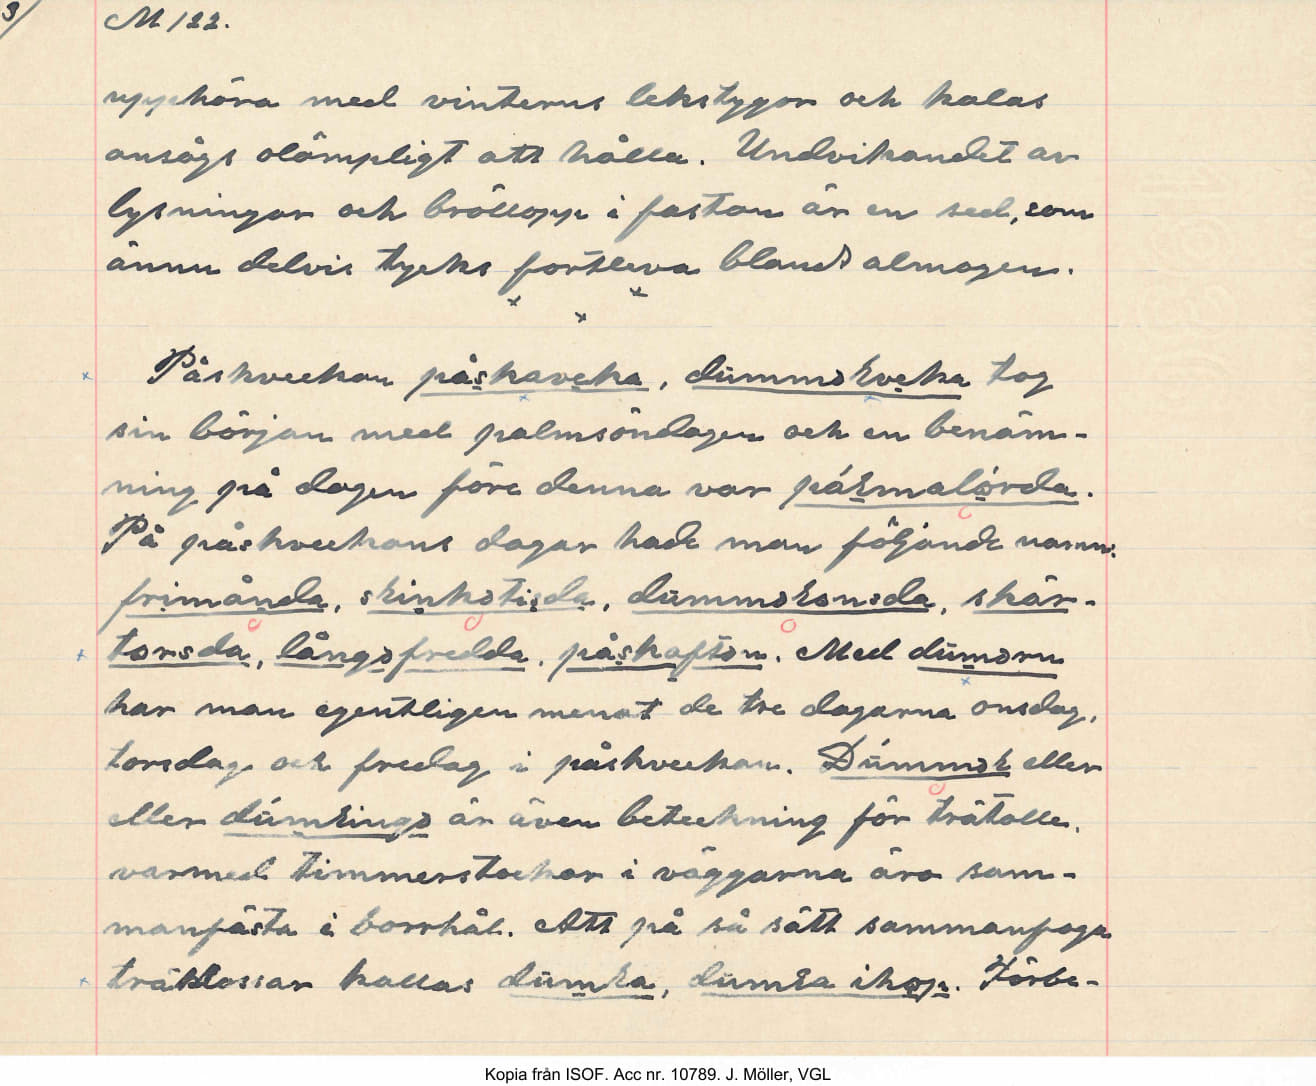 3/
M 122.
upphöra med vinterns lekstygor och kalas
ansågs olämpligt att hålla. Undvikandet av
lysningar och bröllopp i fastan är en sed, som
ännu delvis tycks fortleva bland almogen.
Påskveckan påskaveka, dummɘkveka tog
sin början med palmsöndagen och en benäm-
ning på dagen före denna var
På påskveckans dagar hade man följande namn:
frimånda, skinkɘtisda, dummɘkonsda, skär-
torsda, långɘfredda, påskaftɘn. Med dūmɘrn
har man egentligen menat de tre dagarna onsdag,
torsdag och fredag i påskveckan. Dúmmɘk eller
eller dúmkingɘ är även beteckning för trätolle,
varmed timmerstockar i väggarna äro sam-
manfästa i borrhål. Att på så sätt sammanfoga
träklossar kallas dūmka, dūmka ihop. Förbe-
Kopia från ISOF. Acc nr. 10789. J. Möller, VGL